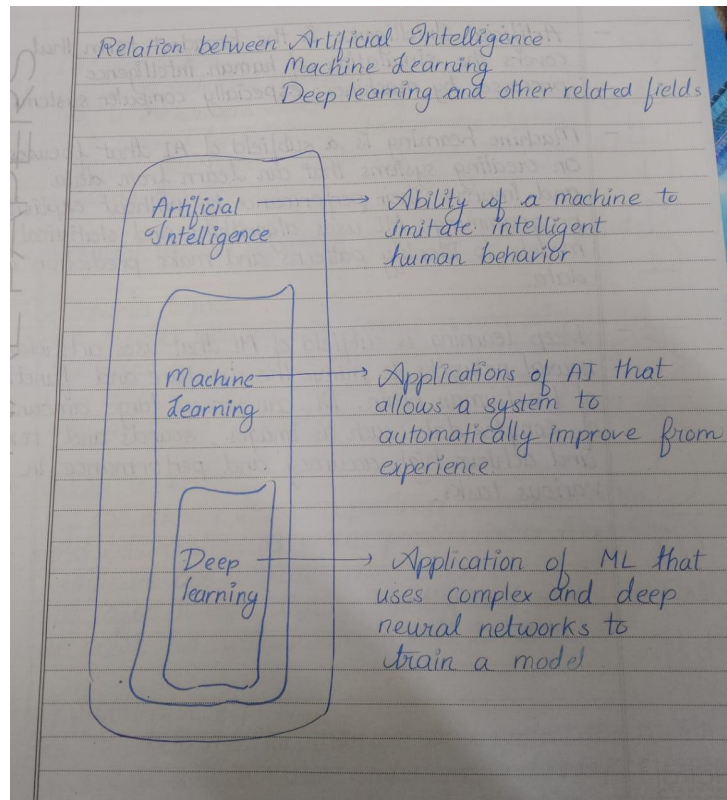 Relation between Artificial Intelligence
Machine Learning
Deep learning and other related fields
Artificial
Intelligence
Ability of a machine to
imitate intelligent
human behavior
Machine
Learning
Applications of AI that
allows a system to
automatically improve from
experience
Deep
learning
Application of ML that
uses complex and deep
neural networks to
train a model